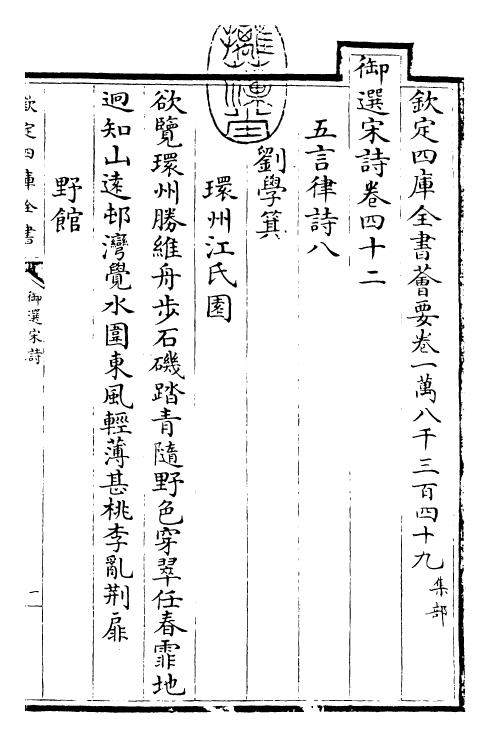 欽定四庫全書薈要卷一萬八千三百四十九集部
御選宋詩卷四十二
五言律詩八
劉學箕
環州江氏園
欲覽環州勝維舟步石磯踏青隨野色穿翠任春霏地
迥知山遠邨灣覺水圍東風輕薄甚桃李亂荆扉
野館
欽定四庫全書
御選宋詩